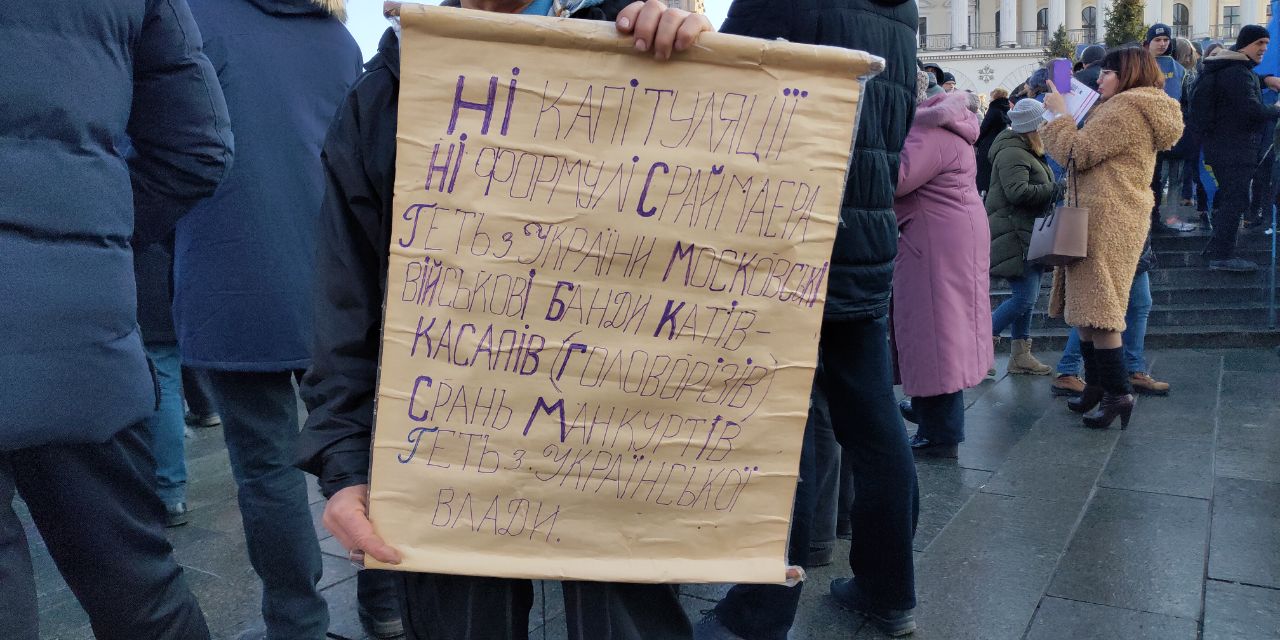 НІ КАПІТУЛЯЦІЇ
НІ ФОРМУЛІ СРАЙМАЕРА
ГЕТЬ з УКРАЇНИ МОСКОВСЬКІ
ВІЙСЬКОВІ БАНДИ КАТІВ-
КАСАПІВ (ГОЛОВОРІЗІВ)
СРАНЬ МАНКУРТІВ
ГЕТЬ з. УКРАЇНСЬКОЇ
ВЛАДИ.